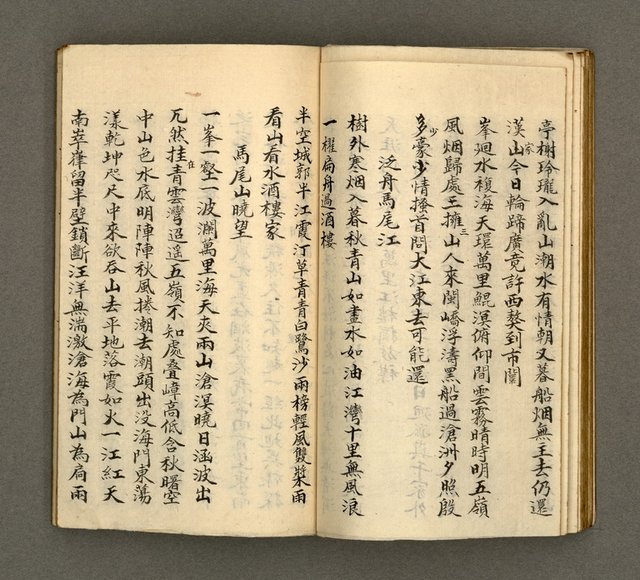 亭榭玲瓏入亂山潮水有情朝又暮船烟無主去仍還
漢家山今日輪蹄廣竟許西獒到市闤
峯廻水複海天環萬里鯤溟俯仰間雲霧晴時明五嶺
風烟歸處王擁三山人來閩嶠浮濤黑船過滄洲夕照殷
多少豪少情搔首問大江東去可能還
泛舟馬尾江
樹外寒烟入暮秋青山如畫水如油江灣十里無風浪
一櫂扁舟過酒樓
半空城郭半江霞汀草青青白鷺沙兩榜輕風雙槳雨
看山看水酒樓家
馬尾山曉望
一峯一壑一波瀾萬里海天夾兩山滄溟曉日涵波出
兀然挂在青雲灣迢遥五嶺不知處叠嶂高低含秋曙空
中山色水底明陣陣秋風捲潮去潮頭出没海門東蕩
漾乾坤咫尺中來欲吞山去平地落霞如火一江紅天
南崒嵂留半壁鎖斷汪洋無湍激滄海為門山為扃兩